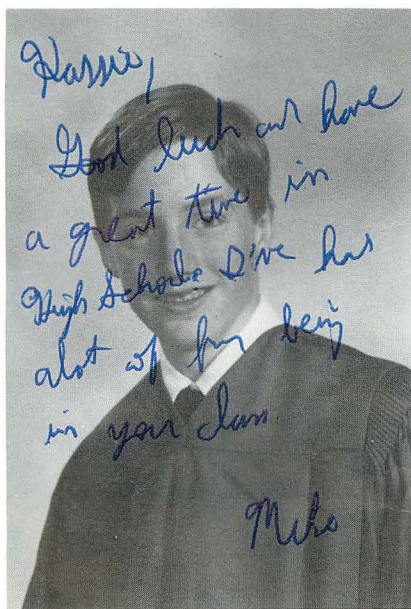 Kassie,
Good luck and have
a great time in
High School. I've had
alot of fun being
in your class.
Mike